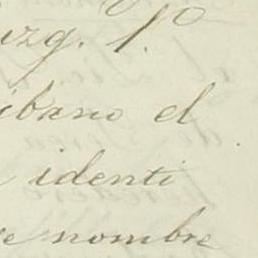 uzg. 1.º
ibano el
identi
e nombre